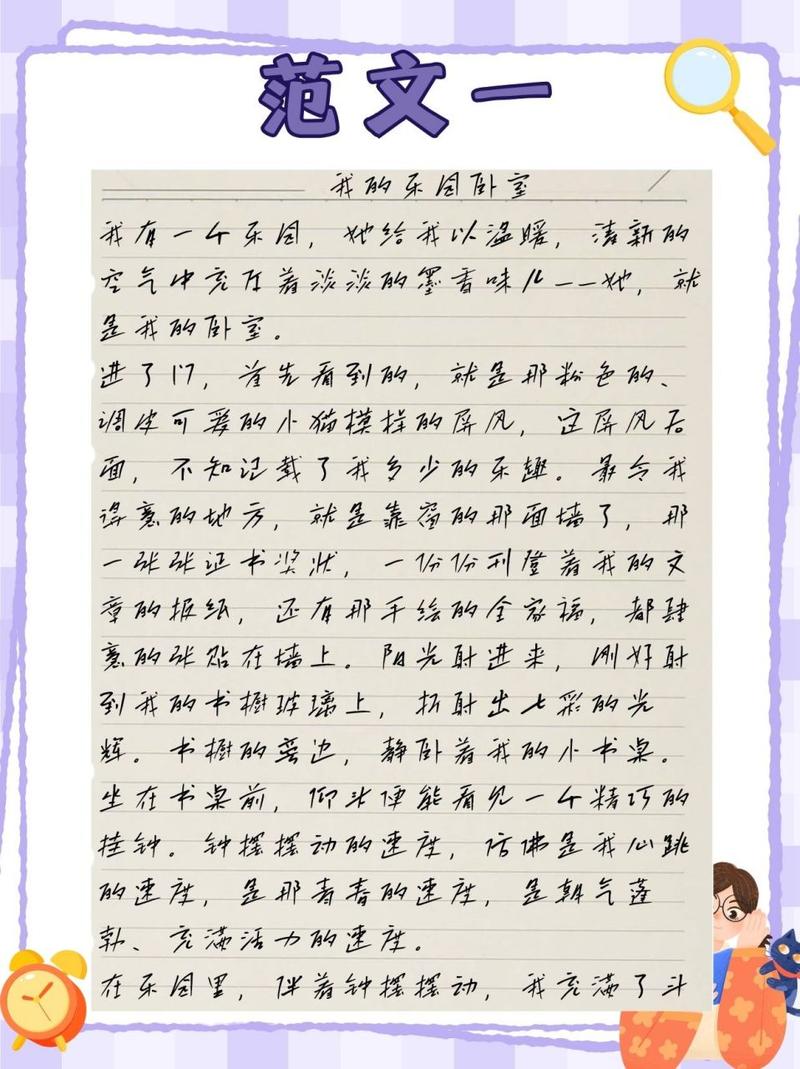 范文一
我的乐园卧室
我有一个乐园，她给我以温暖，清新的
空气中充存着淡淡的墨香味儿——她，就
是我的卧室。
进了门，首先看到的，就是那粉色的、
调皮可爱的小猫模样的屏风，这屏风后
面，不知记载了我多少的乐趣。最令我
得意的地方，就是靠窗的那面墙了，那
一张张证书奖状，一份份刊登着我的文
章的报纸，还有那手绘的全家福，都肆
意的张贴在墙上。阳光射进来，刚好射
到我的书橱玻璃上，折射出七彩的光
辉。书橱的旁边，静卧着我的小书桌。
坐在书桌前，仰头便能看见一个精巧的
挂钟。钟摆摆动的速度，仿佛是我心跳
的速度，是那青春的速度，是朝气蓬
勃、充满活力的速度。
在乐园里，伴着钟摆摆动，我充满了斗